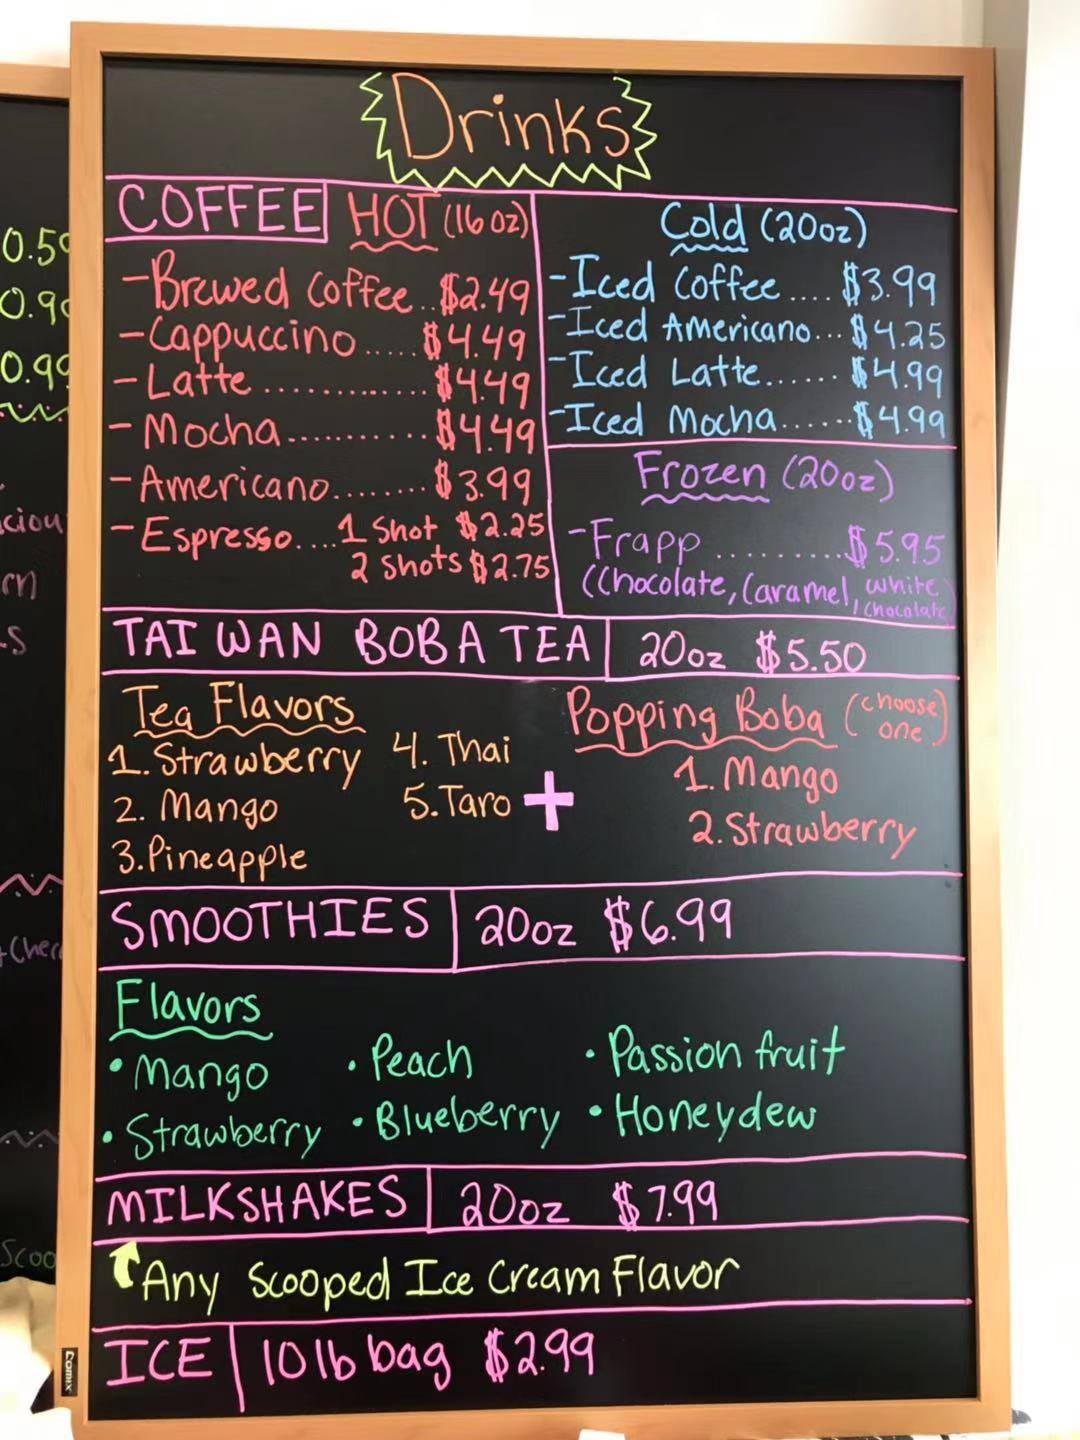 Drinks
COFFEE HOT (16 oz)
-Brewed Coffee..$2.49
-Cappuccino.....$4.49
-Latte..............$4.49
-Mocha............$4.49
-Americano........$3.99
-Espresso....1 Shot $2.25
2 Shots $2.75
Cold (20oz)
-Iced Coffee....$3.99
-Iced Americano...$4.25
-Iced Latte......$4.99
-Iced Mocha......$4.99
Frozen (20oz)
-Frapp..........$5.95
(Chocolate, Caramel, white chocolate
TAIWAN BOBA TEA 20oz $5.50
Tea Flavors
1. Strawberry
2. Mango
3. Pineapple
4. Thai
5. Taro
+
Popping Boba (choose one)
1. Mango
2. Strawberry
SMOOTHIES 20oz $6.99
Flavors
• Mango • Peach • Passion fruit
• Strawberry • Blueberry • Honeydew
MILKSHAKES 20oz $7.99
Any Scooped Ice Cream Flavor
ICE 10 lb bag $2.99
Comix
0.59
0.99
0.99